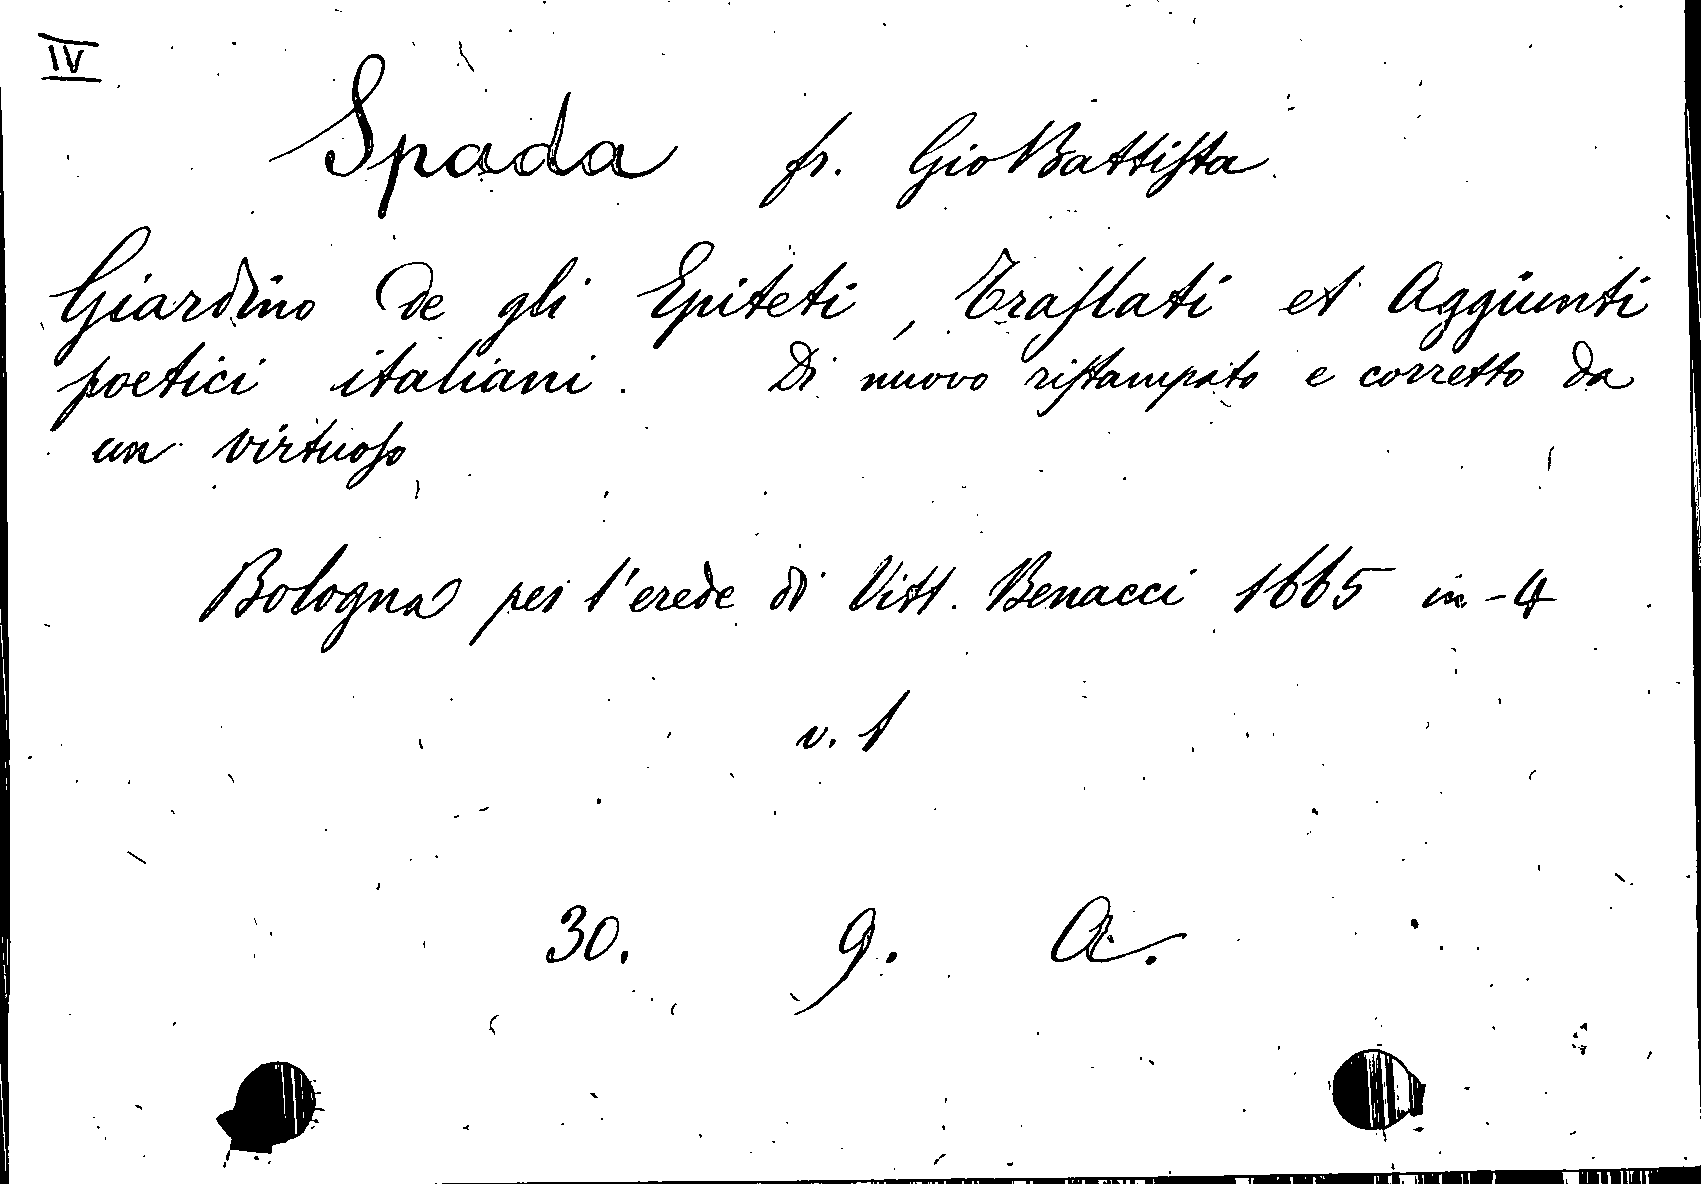 IV
Spada fr. Gio Battiſta
Giardino de gli Epiteti, Traſlati et Aggiunti
poetici italiani. Di nuovo riſtampato e corretto da
un virtuoſo
Bologna per l'erede di Vitt. Benacci 1665 in-4
v. 1
30. 9. A.